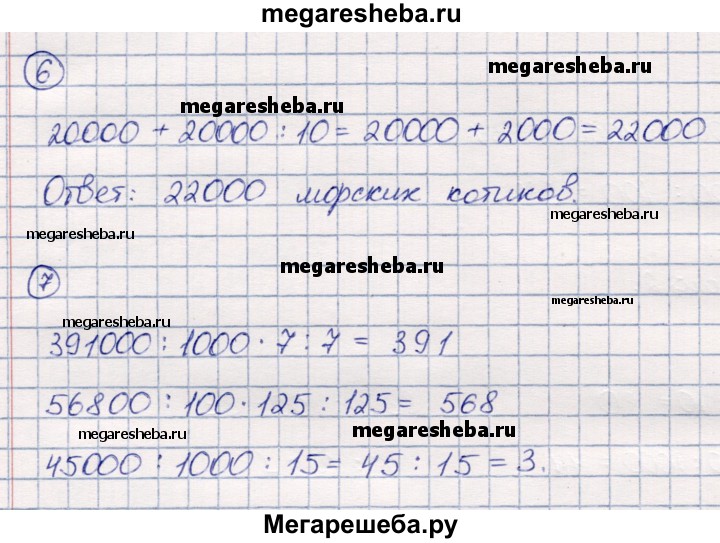 megaresheba.ru
6
megaresheba.ru
megaresheba.ru
20000 + 20000 : 10 = 20000 + 2000 = 22000
Ответ: 22000 морских котиков.
megaresheba.ru
megaresheba.ru
megaresheba.ru
7
megaresheba.ru
megaresheba.ru
391000 : 1000 · 7 : 7 = 391
56800 : 100 · 125 : 125 = 568
megaresheba.ru
megaresheba.ru
45000 : 1000 : 15 = 45 : 15 = 3.
Мегарешеба.ру